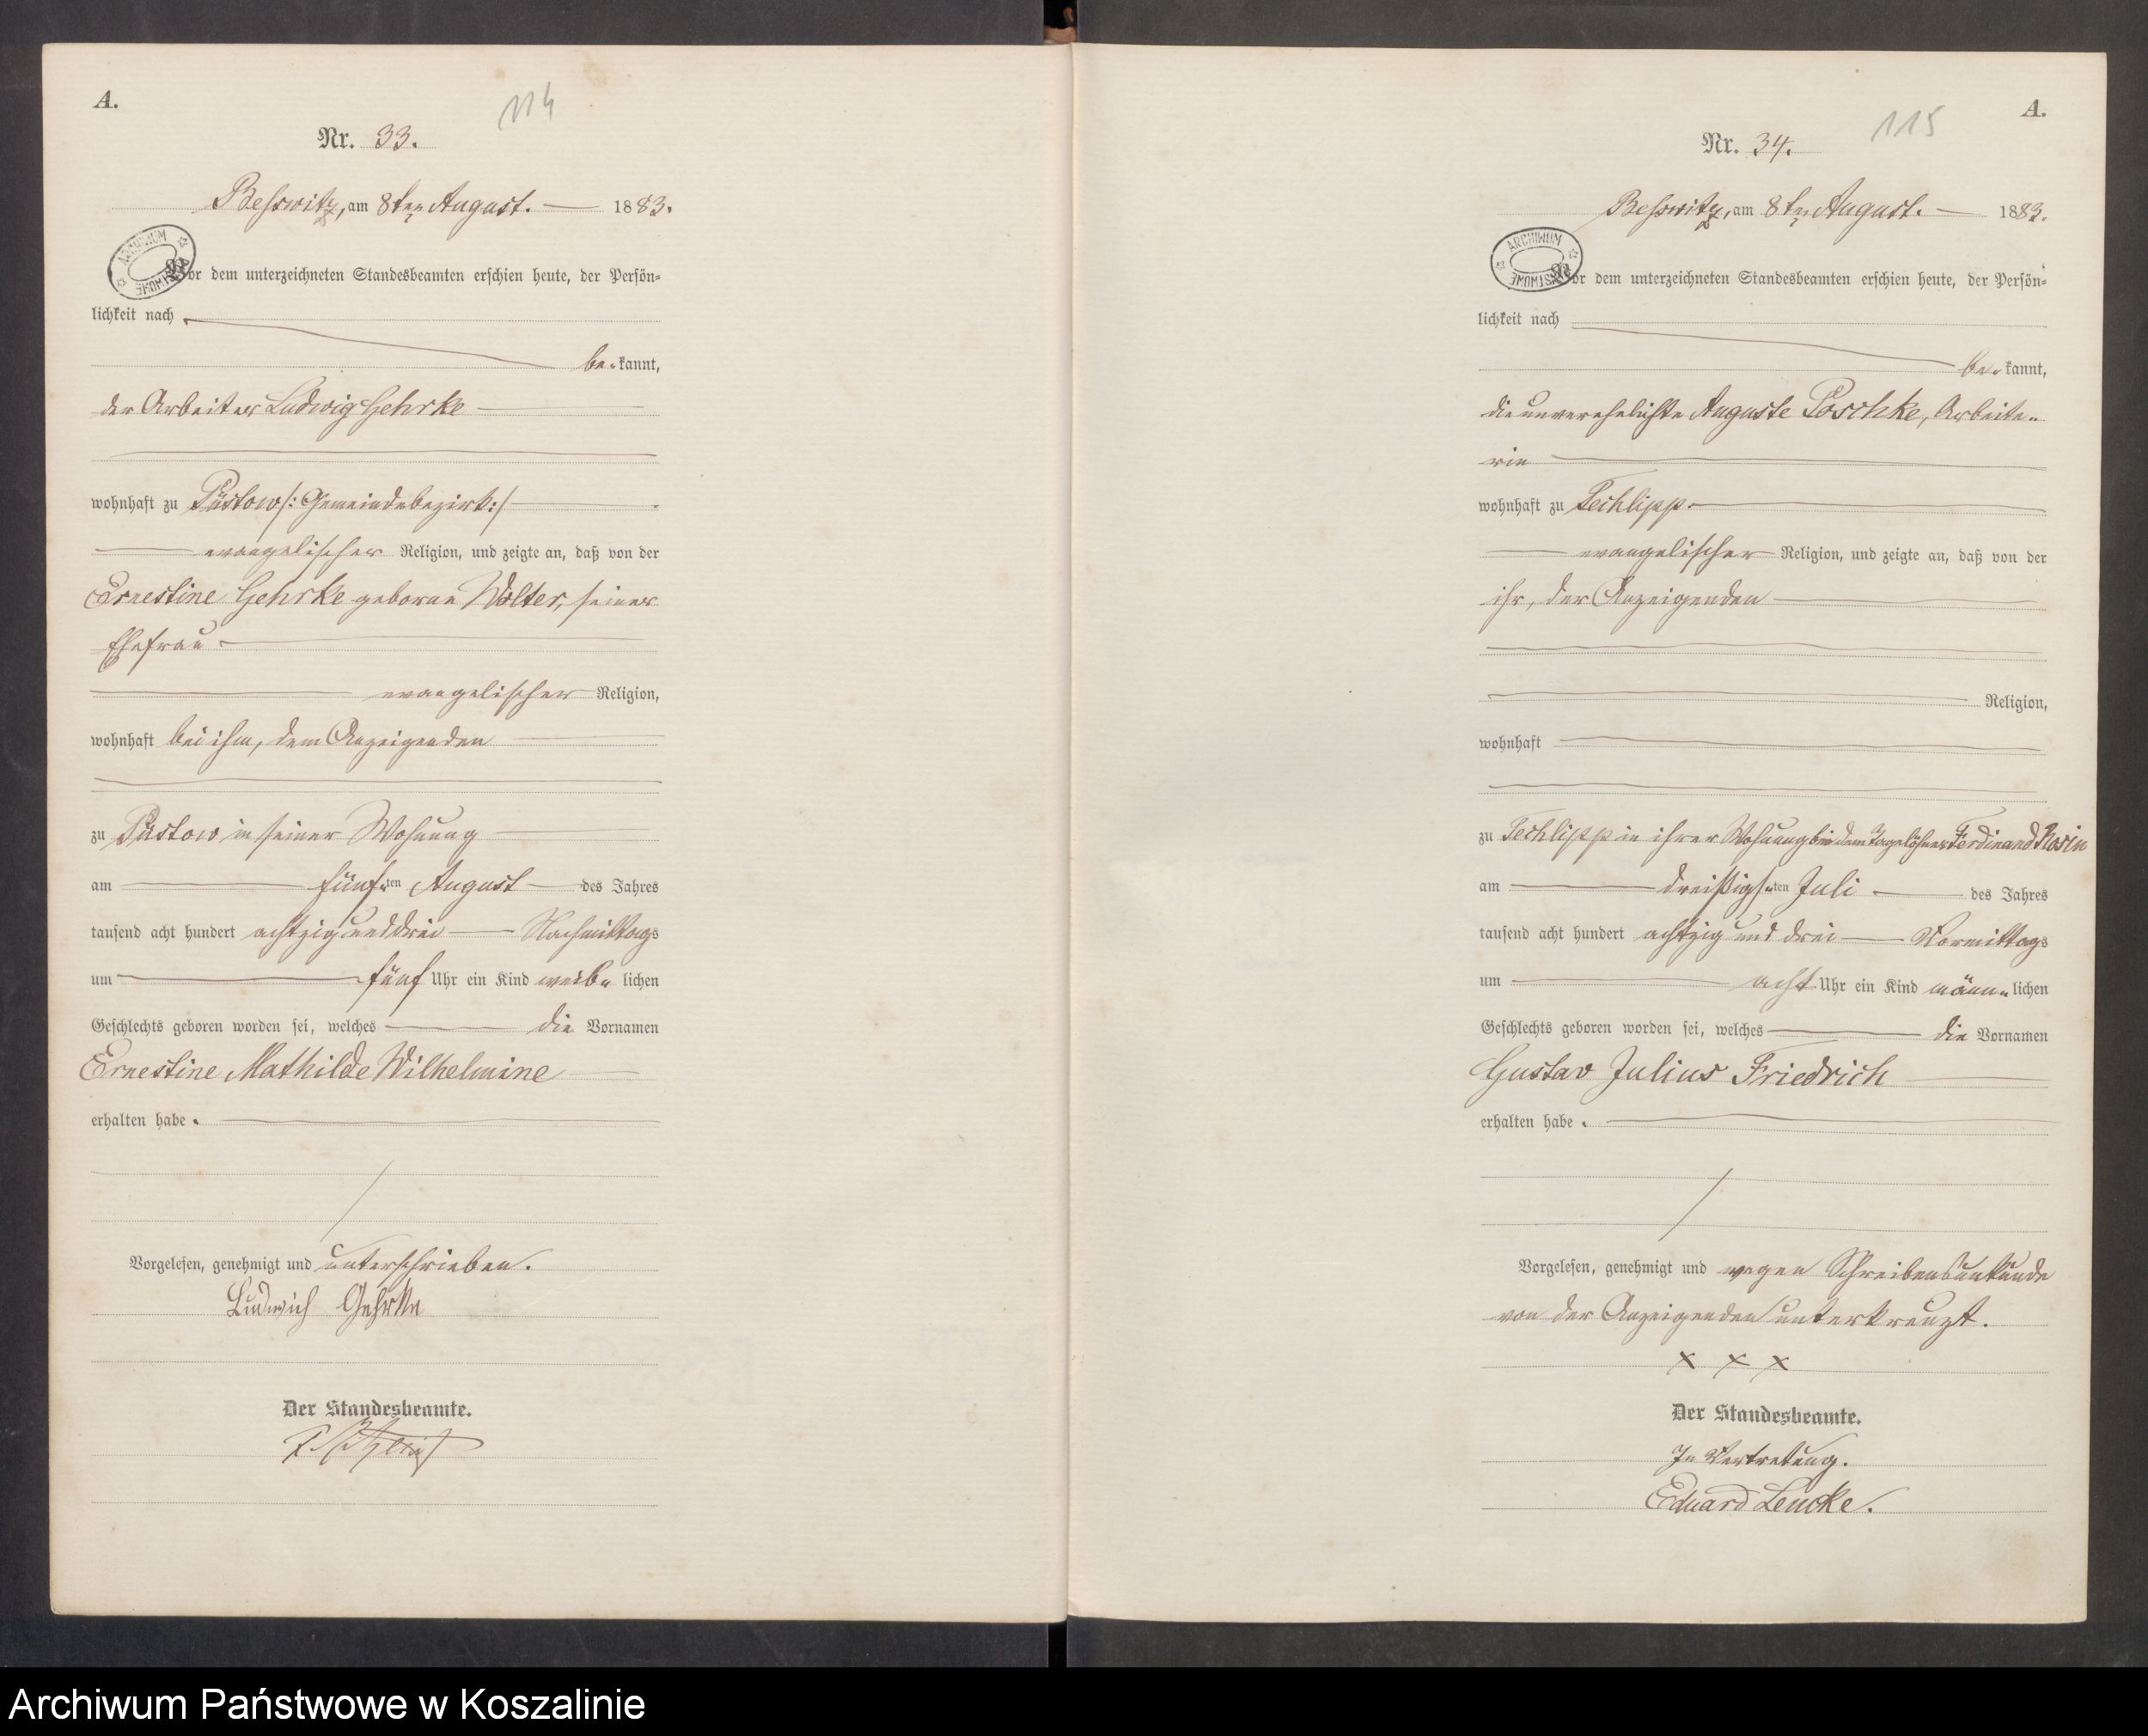 A.
114
Nr. 33.
Beßwitz, am 8ten August. 1883.
ARCHIWUM
Vor dem unterzeichneten Standesbeamten erschien heute, der Persön-
lichkeit nach
be- kannt,
der Arbeiter Ludwig Gehrke
wohnhaft zu Püstow /: Gemeindebezirk :/
evangelischer Religion, und zeigte an, daß von der
Ernestine Gehrke geborne Wolter, seiner
Ehefrau
evangelischer Religion,
wohnhaft bei ihm, dem Anzeigenden
zu Püstow in seiner Wohnung
am fünften August des Jahres
tausend acht hundert achtzig und drei Nachmittags
um fünf Uhr ein Kind weib- lichen
Geschlechts geboren worden sei, welches die Vornamen
Ernestine Mathilde Wilhelmine
erhalten habe.
Vorgelesen, genehmigt und unterschrieben.
Ludwich Gehrke
Der Standesbeamte.
A.
115
Nr. 34.
Beßwitz, am 8ten August. 1883.
ARCHIWUM
Vor dem unterzeichneten Standesbeamten erschien heute, der Persön-
lichkeit nach
be- kannt,
die unverehelichte Auguste Poschke, Arbeite-
rin
wohnhaft zu Techlipp
evangelischer Religion, und zeigte an, daß von der
ihr, der Anzeigenden
Religion,
wohnhaft
zu Techlipp in ihrer Wohnung bei dem Tagelöhner Ferdinand Rosin
am dreißigsten Juli des Jahres
tausend acht hundert achtzig und drei Vormittags
um acht Uhr ein Kind männ- lichen
Geschlechts geboren worden sei, welches die Vornamen
Gustav Julius Friedrich
erhalten habe.
Vorgelesen, genehmigt und wegen Schreibensunkunde
von der Anzeigenden unterkreuzt.
x x x
Der Standesbeamte.
In Vertretung.
Eduard Lemcke.
Archiwum Państwowe w Koszalinie